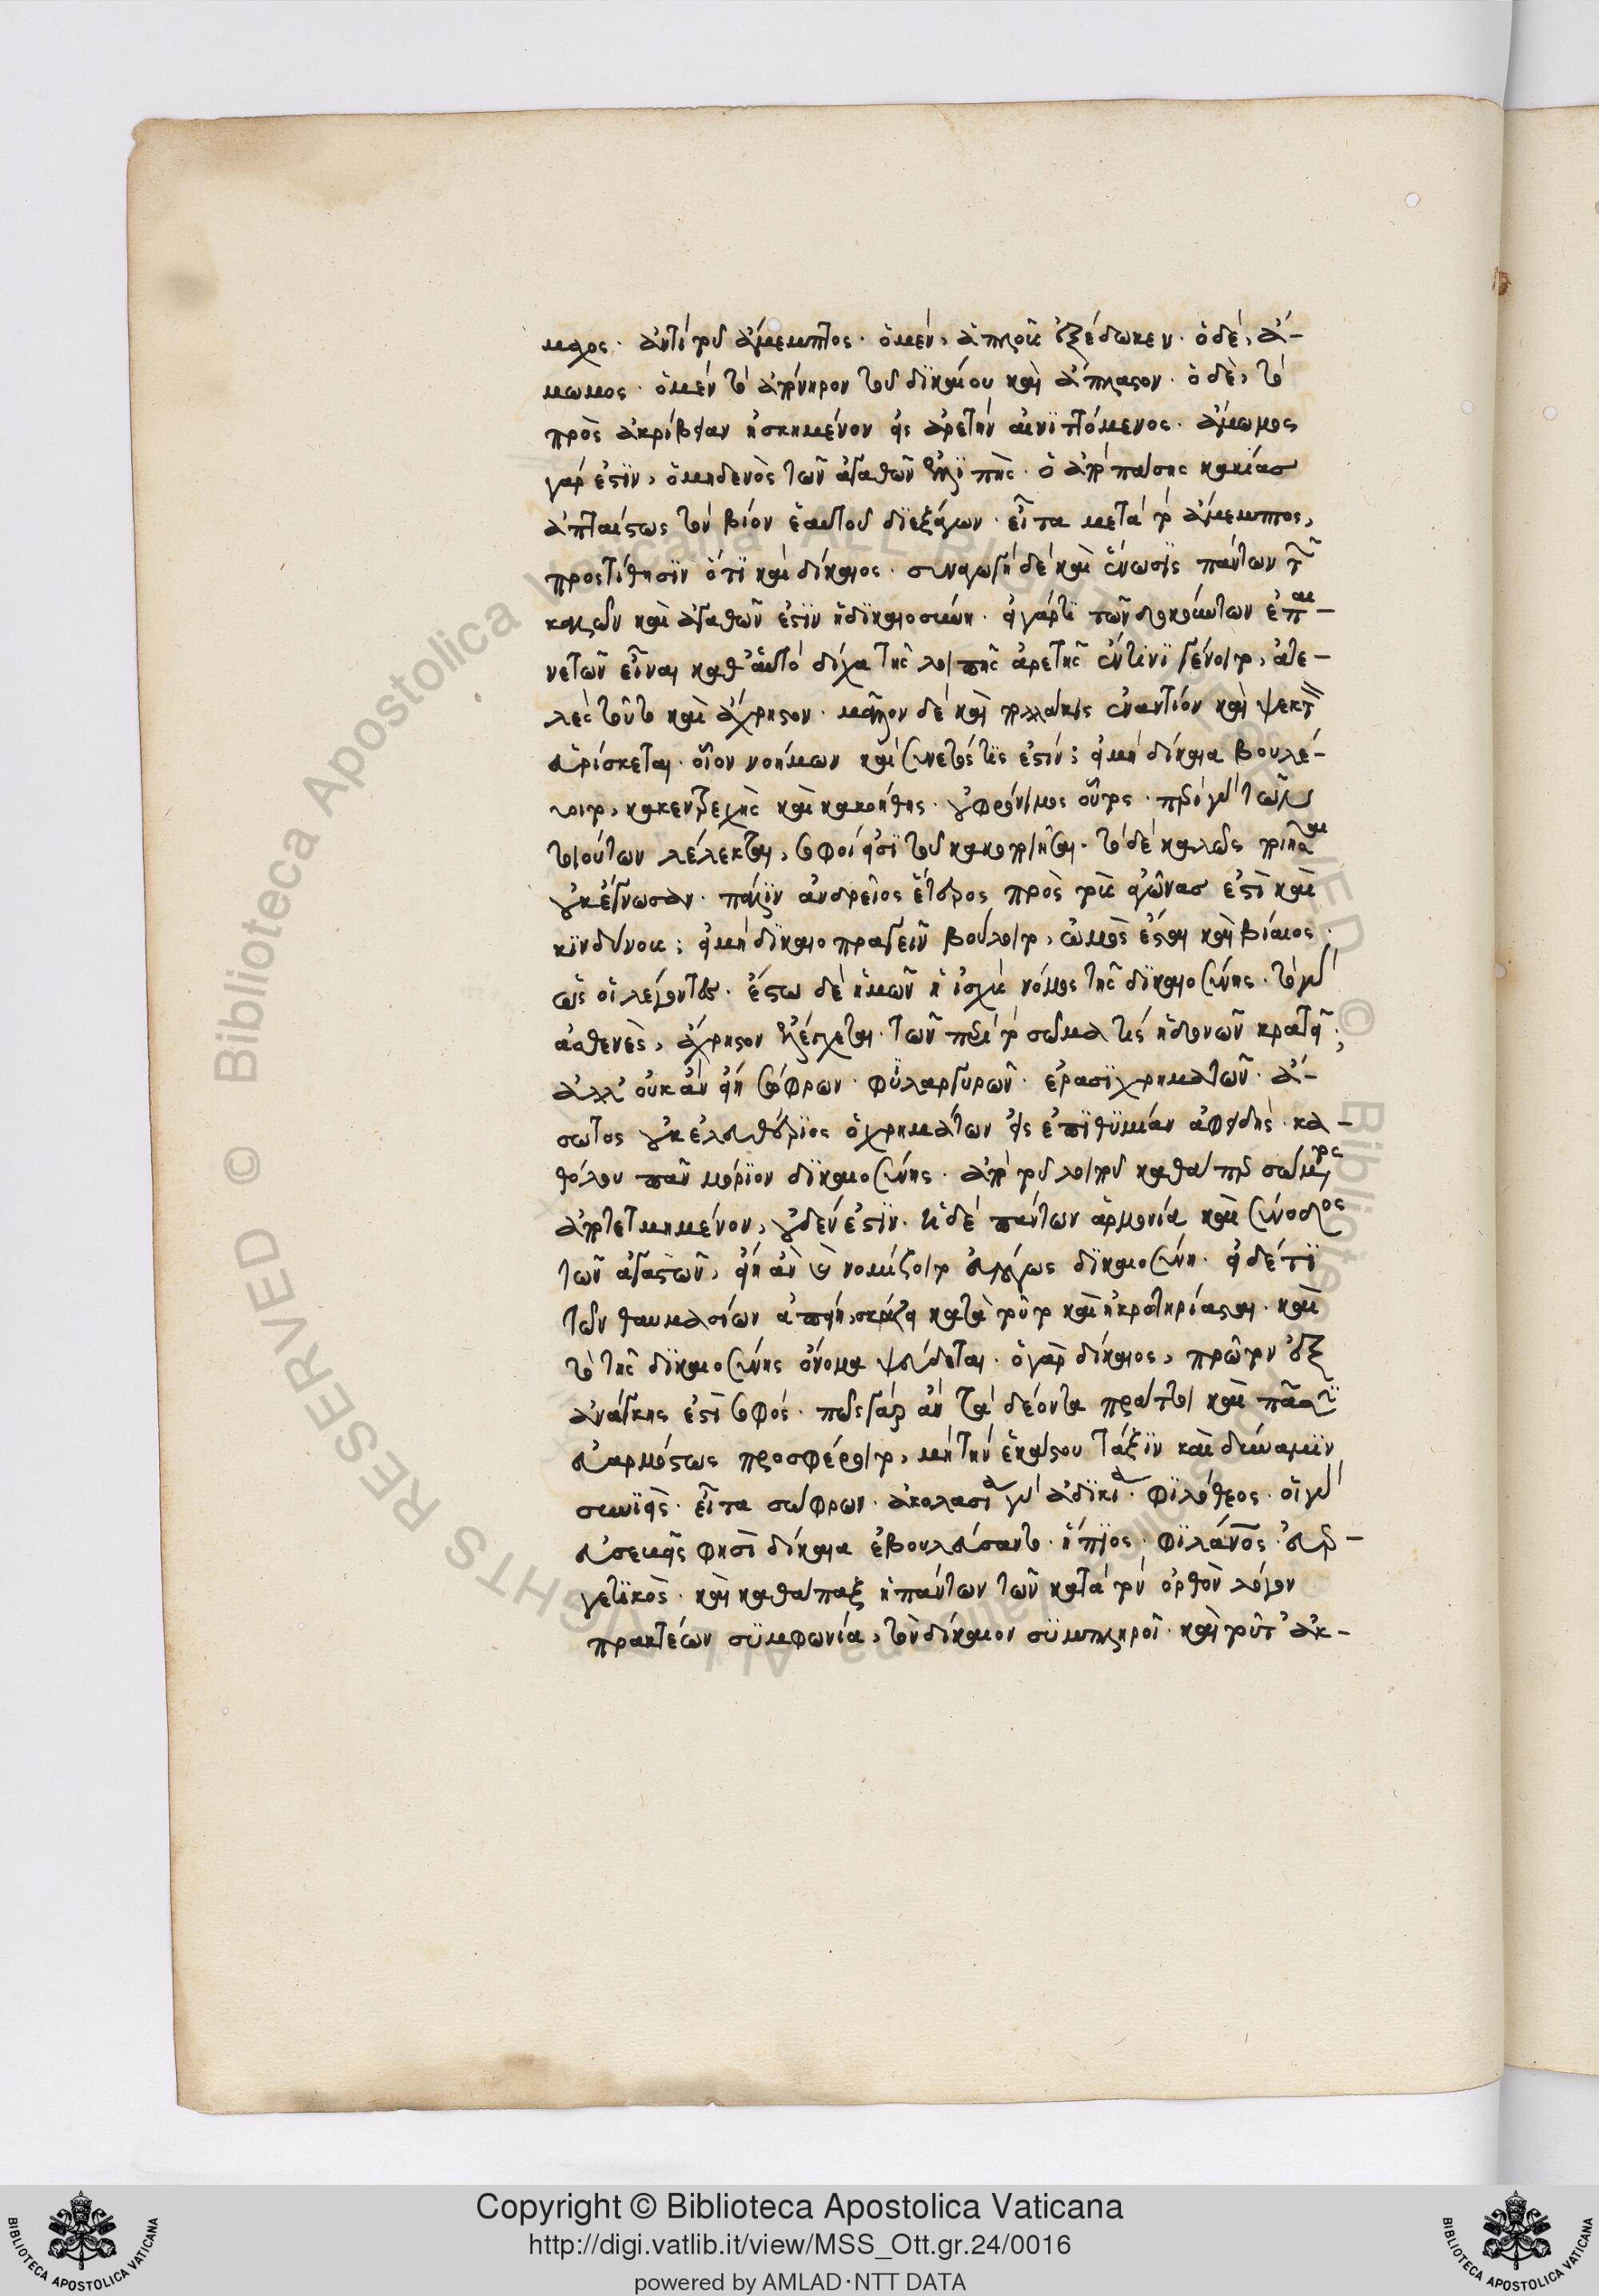 μαχος. ἀντὶ τοῦ ἄμεμπτος. ὁ μὲν, ἁπλοῦς ἐξέδωκεν. ὁ δὲ, ἄ-
μωμος. ὁ μὲν τὸ ἀπόνηρον τοῦ δικαίου καὶ ἄπλαστον. ὁ δὲ, τὸ
πρὸς ἀκρίβειαν ἠσκημένον εἰς ἀρετὴν αἰνιττόμενος. ἄμωμος
γάρ ἐστιν, ὁ μηδενὸς τῶν ἀγαθῶν ἐλλιπὴς. ὁ ἀπὸ πάσης κακίας
ἀπταίστως τὸν βίον ἑαυτοῦ διεξάγων. εἶτα μετὰ τὸ ἄμεμπτος,
προστίθησιν ὅτι καὶ δίκαιος. συναγωγὴ δὲ καὶ ἕνωσις πάντων τῶν
καλῶν καὶ ἀγαθῶν ἐστὶν ἡ δικαιοσύνη. εἰ γάρ τι τῶν δοκούντων ἐπαι-
νετῶν εἶναι καθ' αὑτὸ δίχα τῆς λοιπῆς ἀρετῆς ἔν τινι γένοιτο, ἀτε-
λὲς τοῦτο καὶ ἄχρηστον. μᾶλλον δὲ καὶ πολλάκις ἐναντίον καὶ ψεκτὸν
εὑρίσκεται. οἷον νοήμων καὶ συνετός τις ἐστίν; εἰ μὴ δίκαια βουλεύ-
οιτο, κακεντρεχὴς καὶ κακοήθης. οὐ φρόνιμος οὗτος. περὶ γὰρ τῶν
τοιούτων λέλεκται, σοφοί εἰσι τοῦ κακοποιῆσαι. τὸ δὲ καλῶς ποιῆσαι
οὐκ ἔγνωσαν. πάλιν ἀνδρεῖος ἕτερος πρὸς τοὺς ἀγῶνας ἐστὶ καὶ
κινδύνους; εἰ μὴ δικαιοπραγεῖν βούλοιτο, ὠμὸς ἔσται καὶ βίαιος.
ὡς οἱ λέγοντες. ἔστω δὲ ἡμῶν ἡ ἰσχὺς νόμος τῆς δικαιοσύνης. τὸ γὰρ
ἀσθενὲς, ἄχρηστον ἐλέγχεται. τῶν περὶ τὸ σῶμα τὶς ἡδονῶν κρατεῖ;
ἀλλ' οὐκ ἂν εἴη σώφρων. φιλαργυρῶν. ἐρασιχρημάτων. ἄ-
σωτος οὐκ ἐλευθέριος ὁ χρημάτων εἰς ἐπιθυμίαν ἀφειδὴς. κα-
θόλου πᾶν μόριον δικαιοσύνης. ἀπὸ τοῦ λοιποῦ καθάπερ σώματος
ἀποτετμημένον, οὐδέν ἐστιν. ἡ δὲ πάντων ἁρμονία καὶ σύνοδος
τῶν ἀγαστῶν, εἴη ἂν καὶ νομίζοιτο εὐλόγως δικαιοσύνη. εἰ δέ τι
τῶν θαυμασίων ἀπείη, σκάζει κατὰ τοῦτο καὶ ἠκρωτηρίασται. καὶ
τὸ τῆς δικαιοσύνης ὄνομα ψεύδεται. ὁ γὰρ δίκαιος, πρῶτον ἐξ
ἀνάγκης ἐστὶ σοφὸς. πῶς γὰρ ἂν τὰ δέοντα πράττοι καὶ πᾶσιν
εὐαρμόστως προσφέροιτο, μὴ τὴν ἑκάστου τάξιν καὶ δύναμιν
συνιεὶς. εἶτα σώφρων. ἀκολασία γὰρ ἀδικία. φιλόθεος. οἱ γὰρ
εὐσεβεῖς φησὶ δίκαια ἐβουλεύσαντο. ἤπιος. φιλάνθρωπος. εὐερ-
γετικὸς. καὶ καθάπαξ ἡ πάντων τῶν κατὰ τὸν ὀρθὸν λόγον
πρακτέων συμφωνία, τὸν δίκαιον συμπληροῖ. καὶ τοῦτ' ἀκ-
Copyright © Biblioteca Apostolica Vaticana
http://digi.vatlib.it/view/MSS_Ott.gr.24/0016
powered by AMLAD·NTT DATA